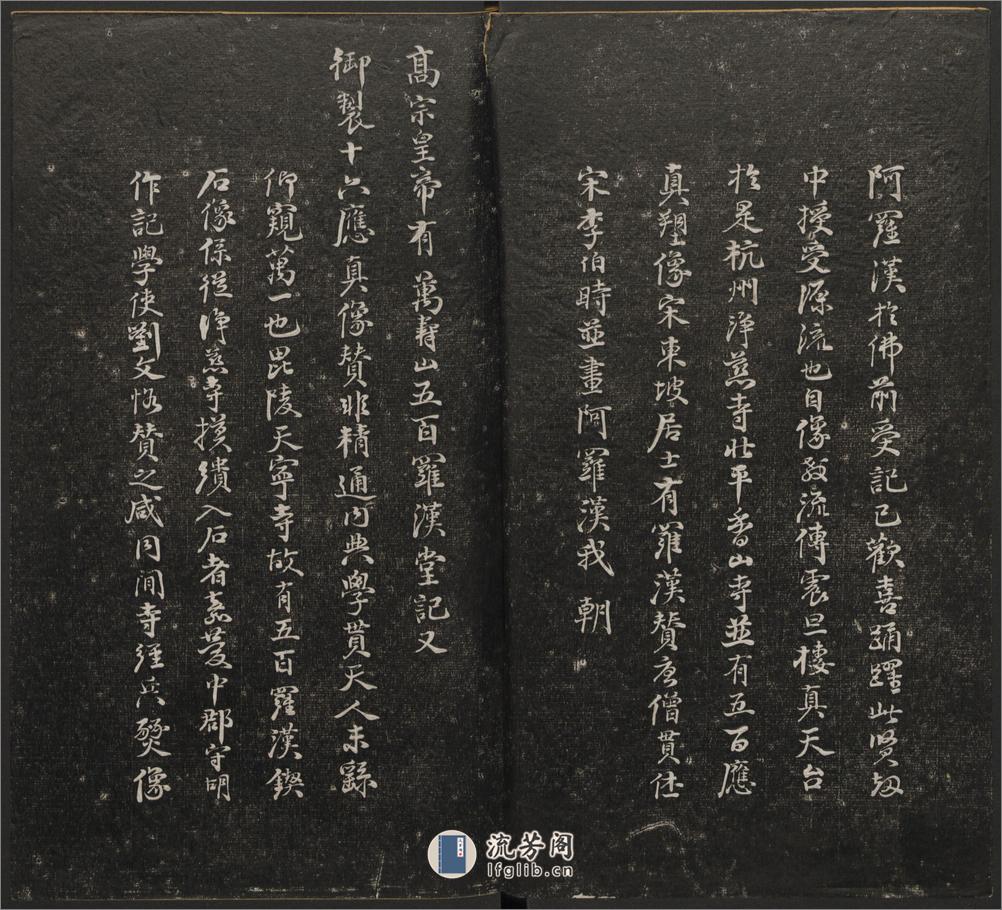 阿羅漢於佛前受記已歡喜踊躍此賢劫
中授受源流也自像教流傳震旦棲真天台
於是杭州淨慈寺北平香山寺並有五百應
真塑像宋東坡居士有羅漢贊唐僧貫休
宋李伯時並畫阿羅漢我 朝
高宗皇帝有 萬壽山五百羅漢堂記又
御製十六應真像贊非精通内典學貫天人未繇
仰窺萬一也毘陵天寧寺故有五百羅漢鍥
石像係從淨慈寺摸繢入石者嘉慶中郡守明
作記學使劉文恪贊之咸同間寺經兵燹像
流芳阁
lfglib.cn